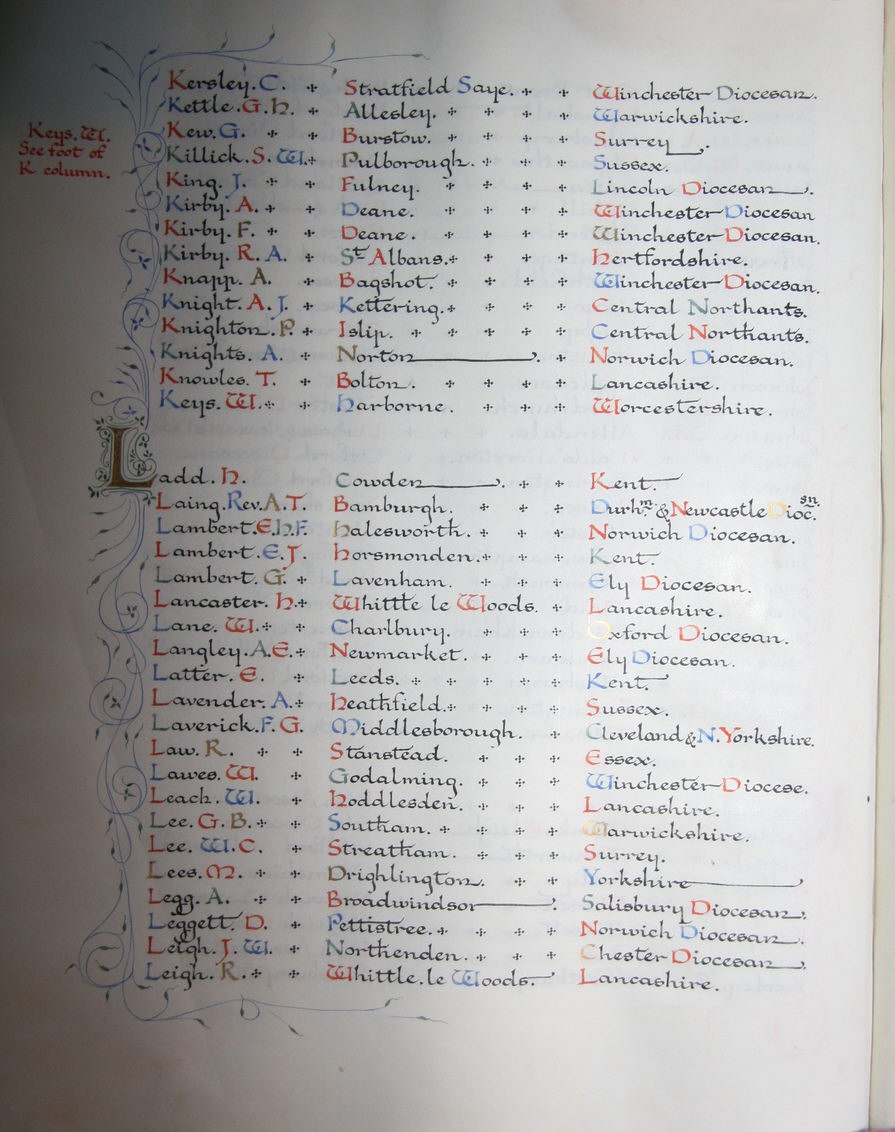 Keys. W.
See foot of
K column.
Kersley. C. Stratfield Saye. Winchester Diocesan.
Kettle. G. H. Allesley. Warwickshire.
Kew. G. Burstow. Surrey.
Killick. S. W. Pulborough. Sussex.
King. J. Fulney. Lincoln Diocesan.
Kirby. A. Deane. Winchester Diocesan
Kirby. F. Deane. Winchester Diocesan.
Kirby. R. A. St Albans. Hertfordshire.
Knapp. A. Bagshot. Winchester Diocesan.
Knight. A. J. Kettering. Central Northants.
Knighton. P. Islip. Central Northants.
Knights. A. Norton. Norwich Diocesan.
Knowles. T. Bolton. Lancashire.
Keys. W. Harborne. Worcestershire.
Ladd. H. Cowden. Kent.
Laing. Rev. A. T. Bamburgh. Durhm. & Newcastle Diocsn.
Lambert. E. H. F. Halesworth. Norwich Diocesan.
Lambert. E. J. Horsmonden. Kent.
Lambert. G. Lavenham. Ely Diocesan.
Lancaster. H. Whittle le Woods. Lancashire.
Lane. W. Charlbury. Oxford Diocesan.
Langley. A. E. Newmarket. Ely Diocesan.
Latter. E. Leeds. Kent.
Lavender. A. Heathfield. Sussex.
Laverick. F. G. Middlesborough. Cleveland & N. Yorkshire.
Law. R. Stanstead. Essex.
Lawes. W. Godalming. Winchester Diocese.
Leach. W. Hoddlesden. Lancashire.
Lee. G. B. Southam. Warwickshire.
Lee. W. C. Streatham. Surrey.
Lees. M. Drighlington. Yorkshire.
Legg. A. Broadwindsor. Salisbury Diocesan.
Leggett. D. Pettistree. Norwich Diocesan.
Leigh. J. W. Northenden. Chester Diocesan.
Leigh. R. Whittle. le Woods. Lancashire.